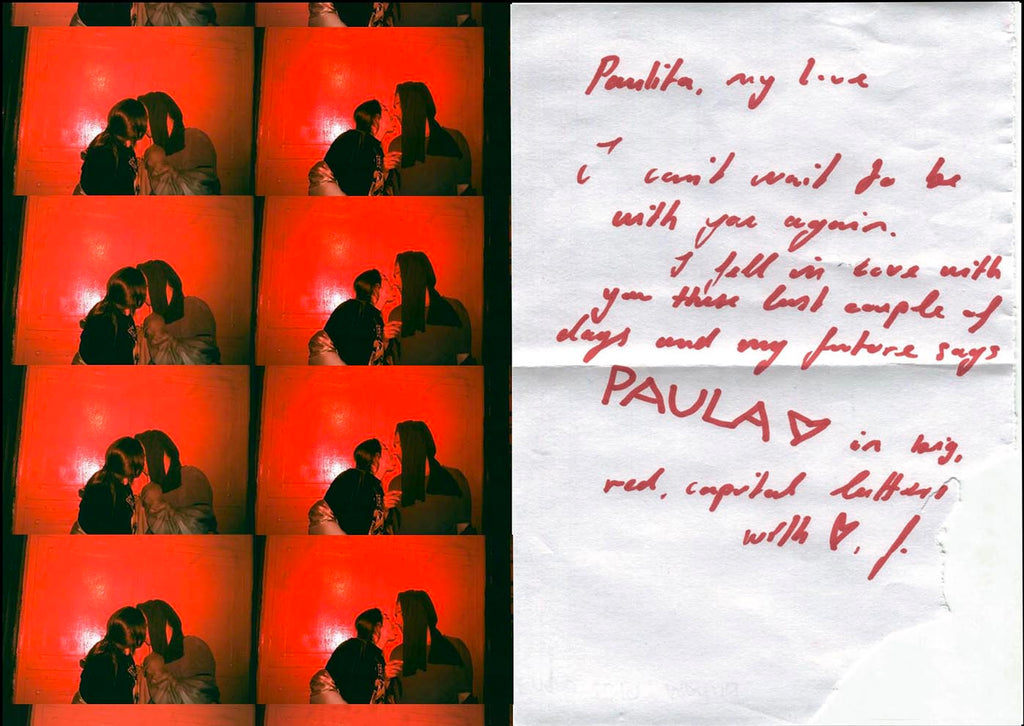 Paulita, my love
I can't wait to be
with you again.
I fell in love with
you these last couple of
days and my future says
PAULA ♡ in big,
red, capital letters
with ♡, J.